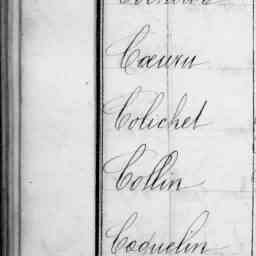 Cœuru
Colichet
Collin
Coquelin